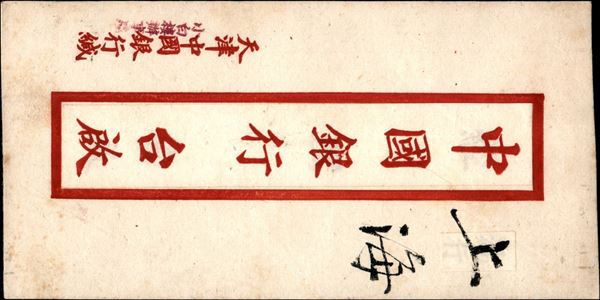 上海
中國銀行台啟
天津中國銀行緘
小白樓辦事處